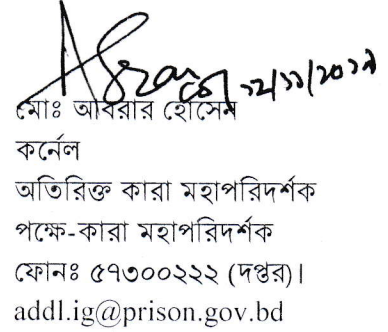 ১২/১১/২০১৯
মোঃ আবরার হোসেন
কর্নেল
অতিরিক্ত কারা মহাপরিদর্শক
পক্ষে-কারা মহাপরিদর্শক
ফোনঃ ৫৭৩০০২২২ (দপ্তর)।
addl.ig@prison.gov.bd